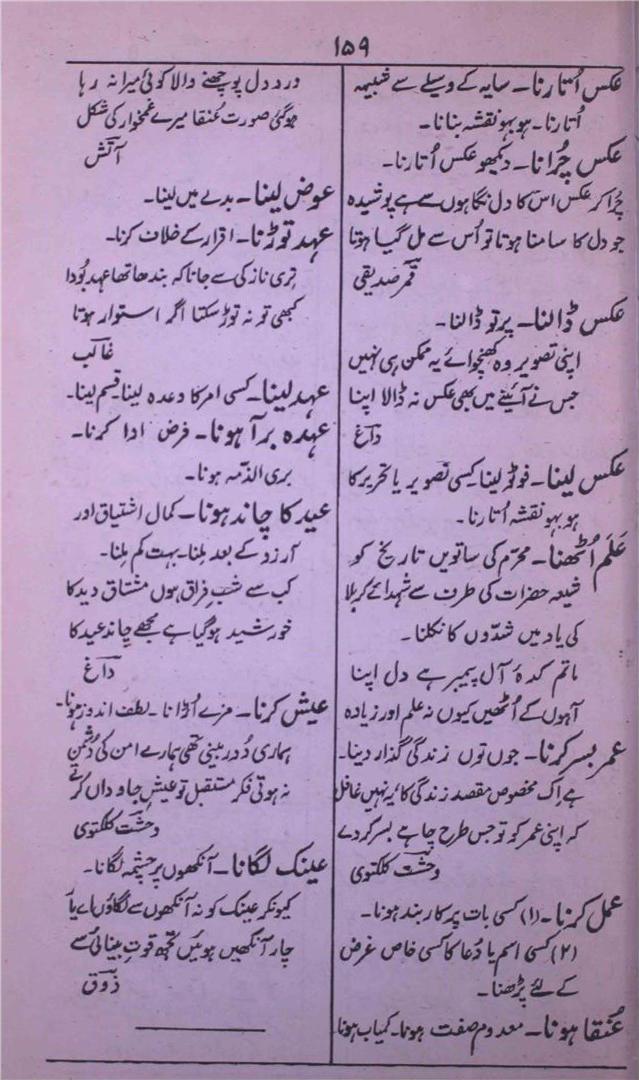 ۱۵۹
عکس اُتارنا۔ سایہ کے وسیلے سے شبیہہ
اُتارنا۔ ہو بہو نقشہ بنانا۔
عکس چُرانا۔ دیکھو عکس اُتارنا۔
چُرا کر عکس اس کا دل نگاہوں سے ہے پوشیدہ
جو دل کا سامنا ہوتا تو اُس سے مل گیا ہوتا
قمر صدیقی
عکس ڈالنا۔ پرتو ڈالنا۔
اپنی تصویر وہ کھنچوائے یہ ممکن ہی نہیں
جس نے آئینے میں بھی عکس نہ ڈالا اپنا
داغ
عکس لینا۔ فوٹو لینا کسی تصویر یا تحریر کا
ہو بہو نقشہ اُتارنا۔
عَلَم اُٹھنا۔ محرّم کی ساتویں تاریخ کو
شیعہ حضرات کی طرف سے شہدائے کربلا
کی یاد میں شدّوں کا نکلنا۔
ماتم کدۂ آلِ پیمبر ہے دل اپنا
آہوں کے اُٹھیں کیوں نہ علم اور زیادہ
عمر بسر کرنا۔ جوں توں زندگی گذار دینا۔
ہے اِک مخصوص مقصد زندگی کا یہ نہیں غافل
کہ اپنی عمر کو تو جس طرح چاہے بسر کر دے
وحشت کلکتوی
عمل کرنا۔ (۱) کسی بات پر کاربند ہونا۔
(۲) کسی اسم یا دُعا کا کسی خاص غرض
کے لئے پڑھنا۔
عُنقا ہونا۔ معدوم صفت ہونا۔ کمیاب ہونا
دردِ دل پوچھنے والا کوئی میرا نہ رہا
ہو گئی صورت عُنقا میرے غمخوار کی شکل
آتش
عوض لینا۔ بدلے میں لینا۔
عہد توڑنا۔ اقرار کے خلاف کرنا۔
تری نازکی سے جانا کہ بندھا تھا عہد بُودا
کبھی تو نہ توڑ سکتا اگر استوار ہوتا
غالب
عہد لینا۔ کسی امر کا وعدہ لینا۔ قسم لینا۔
عہدہ برآ ہونا۔ فرض ادا کرنا۔
بری الذمّہ ہونا۔
عید کا چاند ہونا۔ کمال اشتیاق اور
آرزو کے بعد مِلنا۔ بہت کم مِلنا۔
کب سے شبِ فراق ہوں مشتاق دید کا
خورشید ہو گیا ہے مجھے چاند عید کا
داغ
عیش کرنا۔ مزے اُڑانا۔ لطف اندوز ہونا۔
ہماری دُور بینی تھی ہمارے امن کی دُشمن
نہ ہوتی فکر مستقبل تو عیشِ جاوداں کرتے
وحشت کلکتوی
عینک لگانا۔ آنکھوں پر چشمہ لگانا۔
کیونکر عینک کو نہ آنکھوں سے لگاؤں اے یار
چار آنکھیں ہوئیں مجھ قوتِ بینائی سے
ذوق